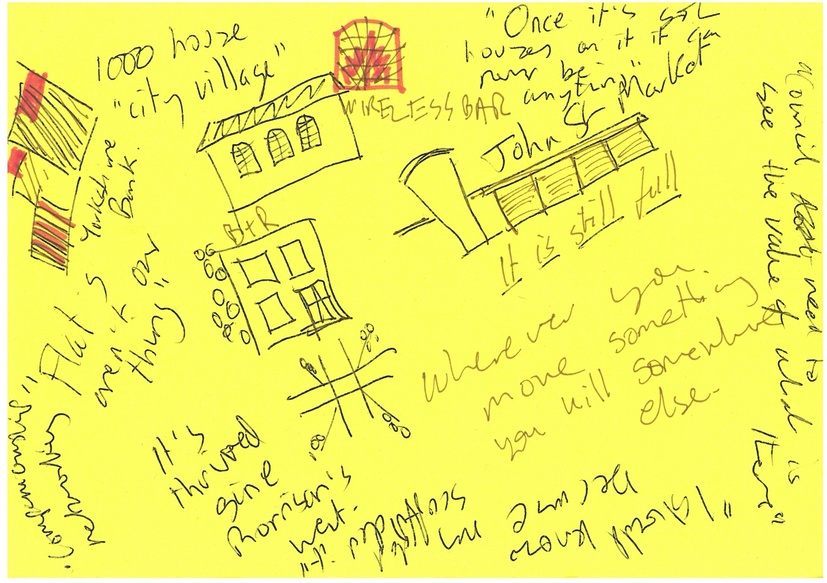 1000 house
"city village"
WIRELESS BAR
"Once it's got
houses on it it can
never be
anything"
John St Market
It is still full
Yorkshire
Bank.
B+R
Flat's
aren't our
thing"
Wherever you
move something
you kill somewhere
else.
"Council need to
see the value of what is
Here"
It's
thrived
since
Morrison's
went.
"I should know
because
my
scaffolded it"
"Compensating